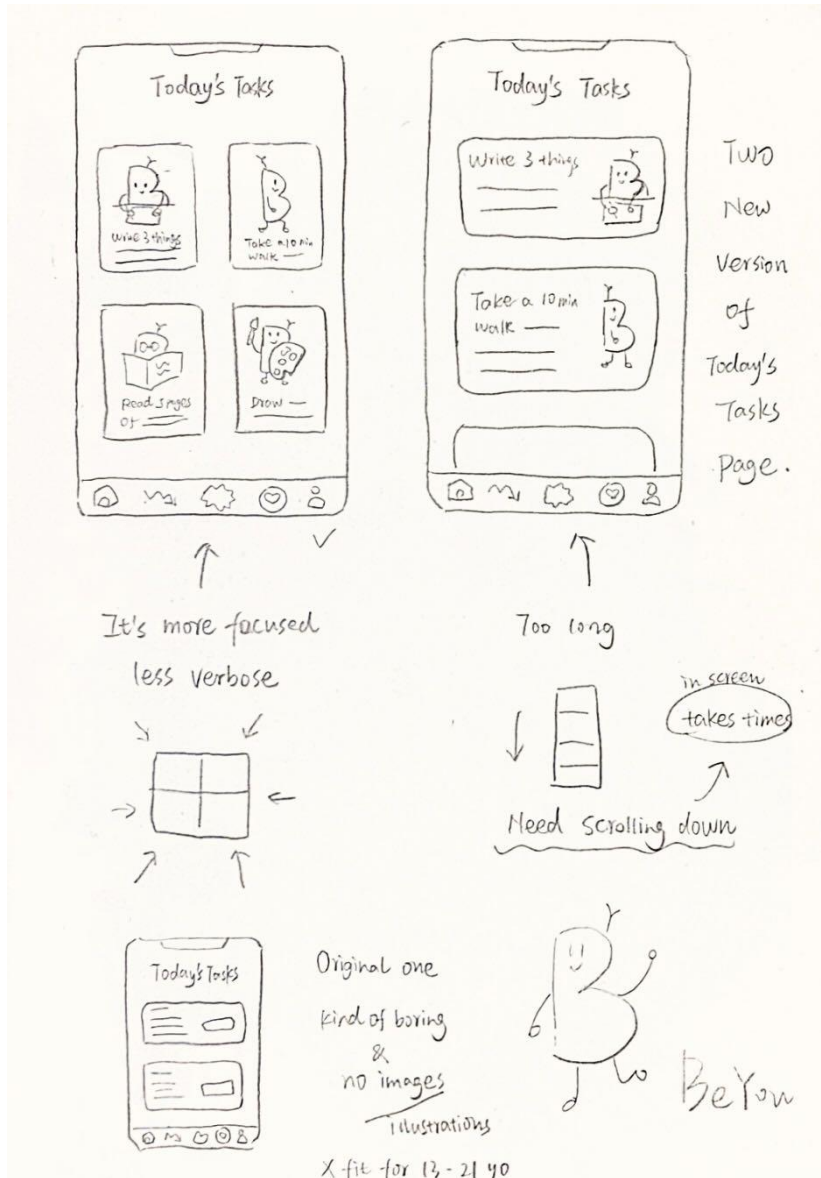 Today's Tasks
Write 3 things
Take a 10 min
walk
Read 3 pages
of
Draw
Today's Tasks
Write 3 things
Take a 10 min
walk
Two
New
Version
of
Today's
Tasks
Page.
It's more focused
less verbose
Too long
in screen
takes times
Need scrolling down
Today's Tasks
Original one
kind of boring
&
no images
illustrations
X fit for 13-21 yo
BeYou